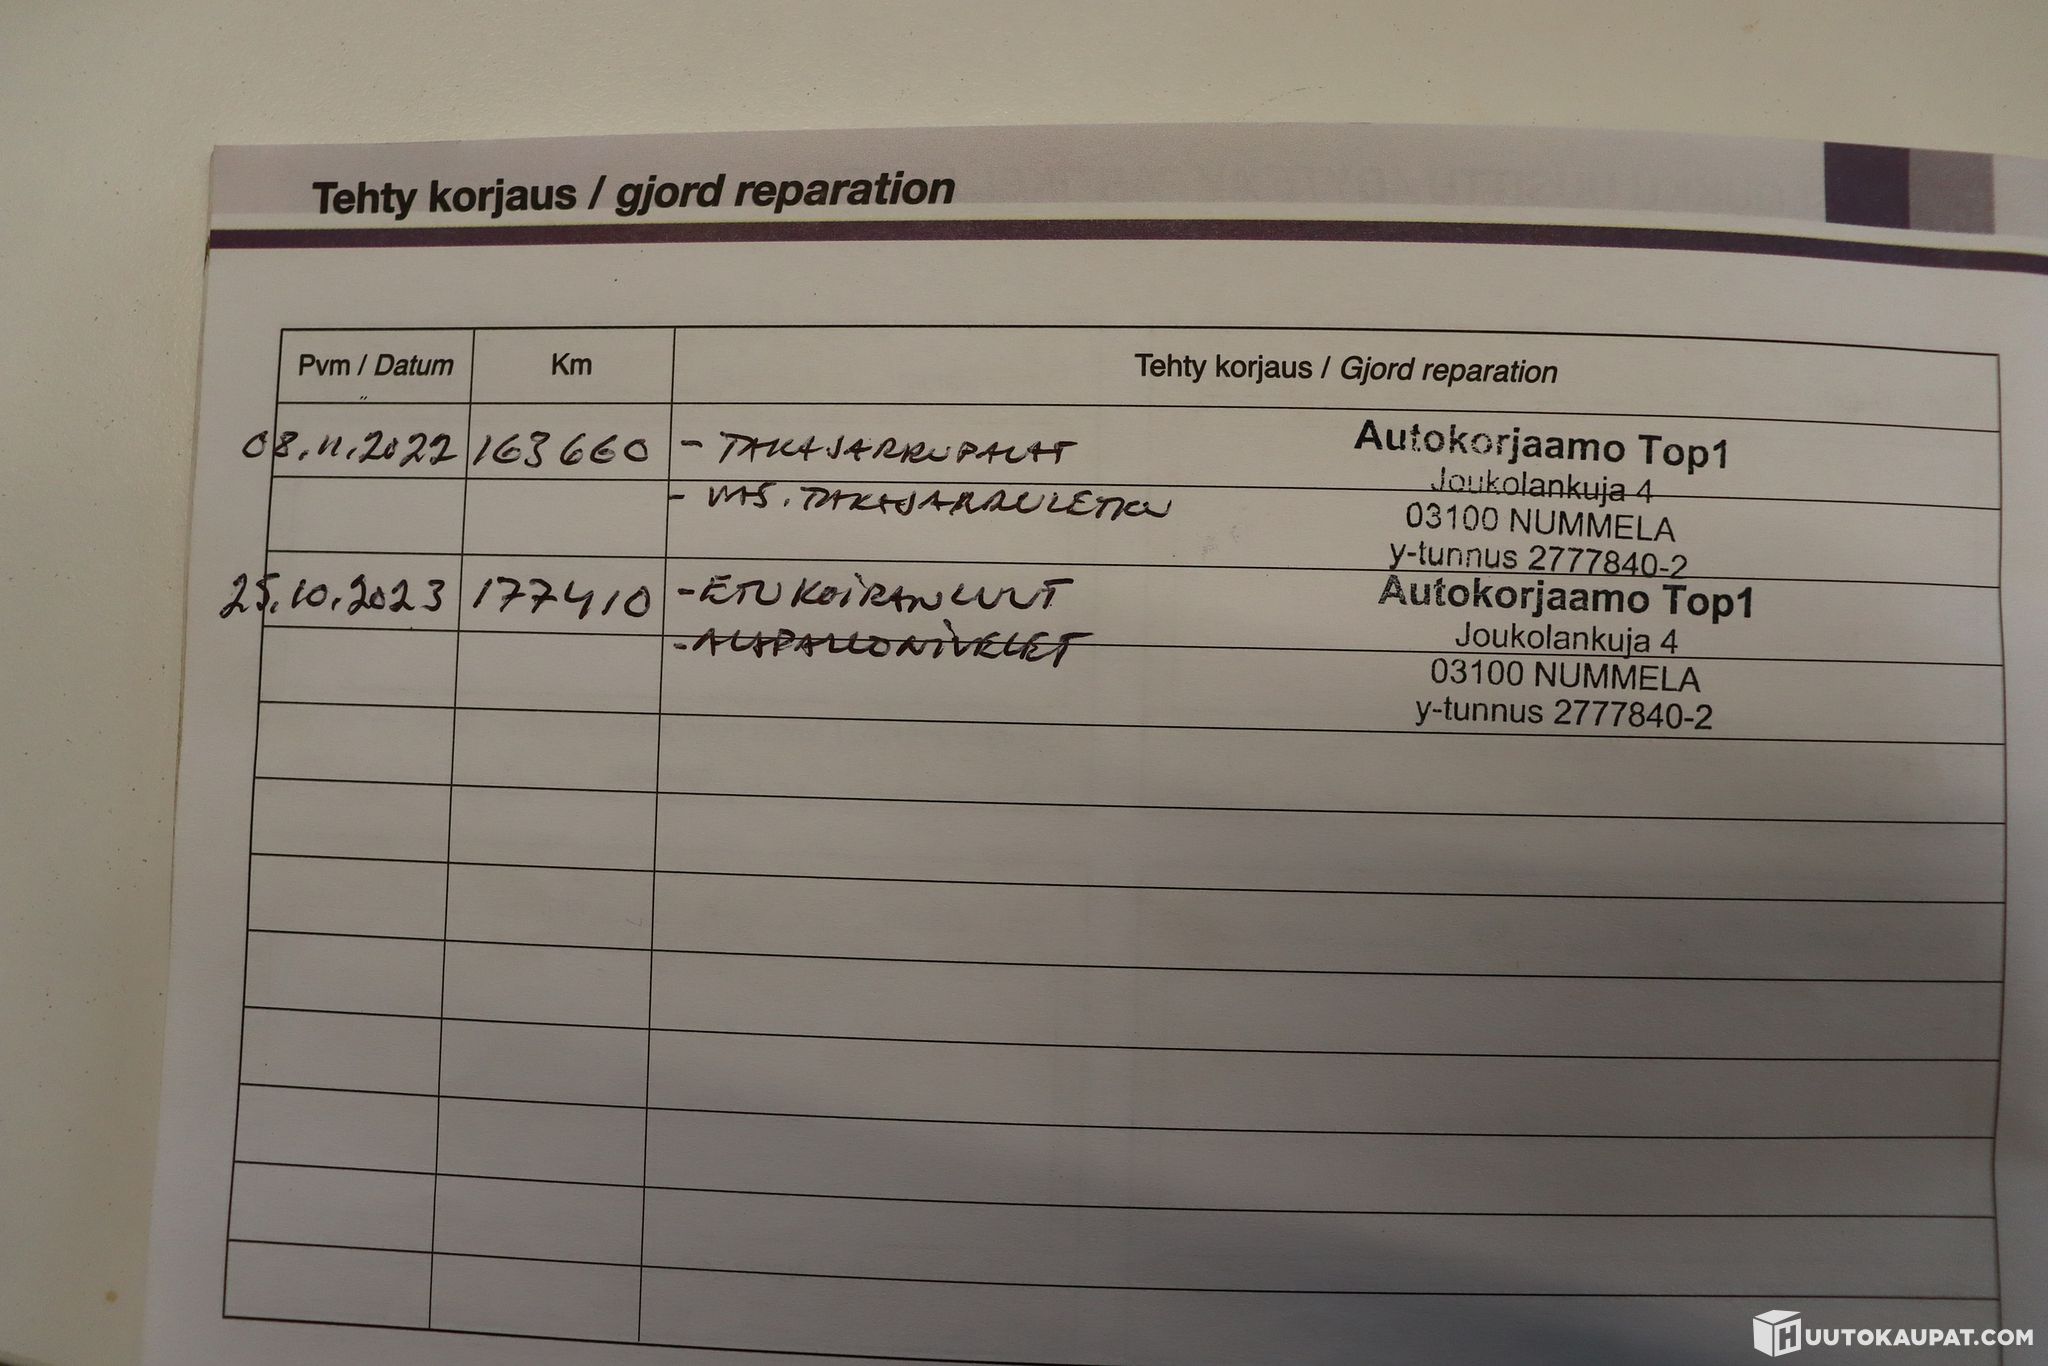 Tehty korjaus / gjord reparation
Pvm / Datum Km Tehty korjaus / Gjord reparation
08.11.2022 163660 - TAKAJARRUPALAT
Autokorjaamo Top1
Joukolankuja 4
- VAS. TAKAJARRULETKU
03100 NUMMELA
y-tunnus 2777840-2
25.10.2023 177410 - ETU KOIRANLUUT
Autokorjaamo Top1
Joukolankuja 4
- ALAPALLONIVELET
03100 NUMMELA
y-tunnus 2777840-2
HUUTOKAUPAT.COM